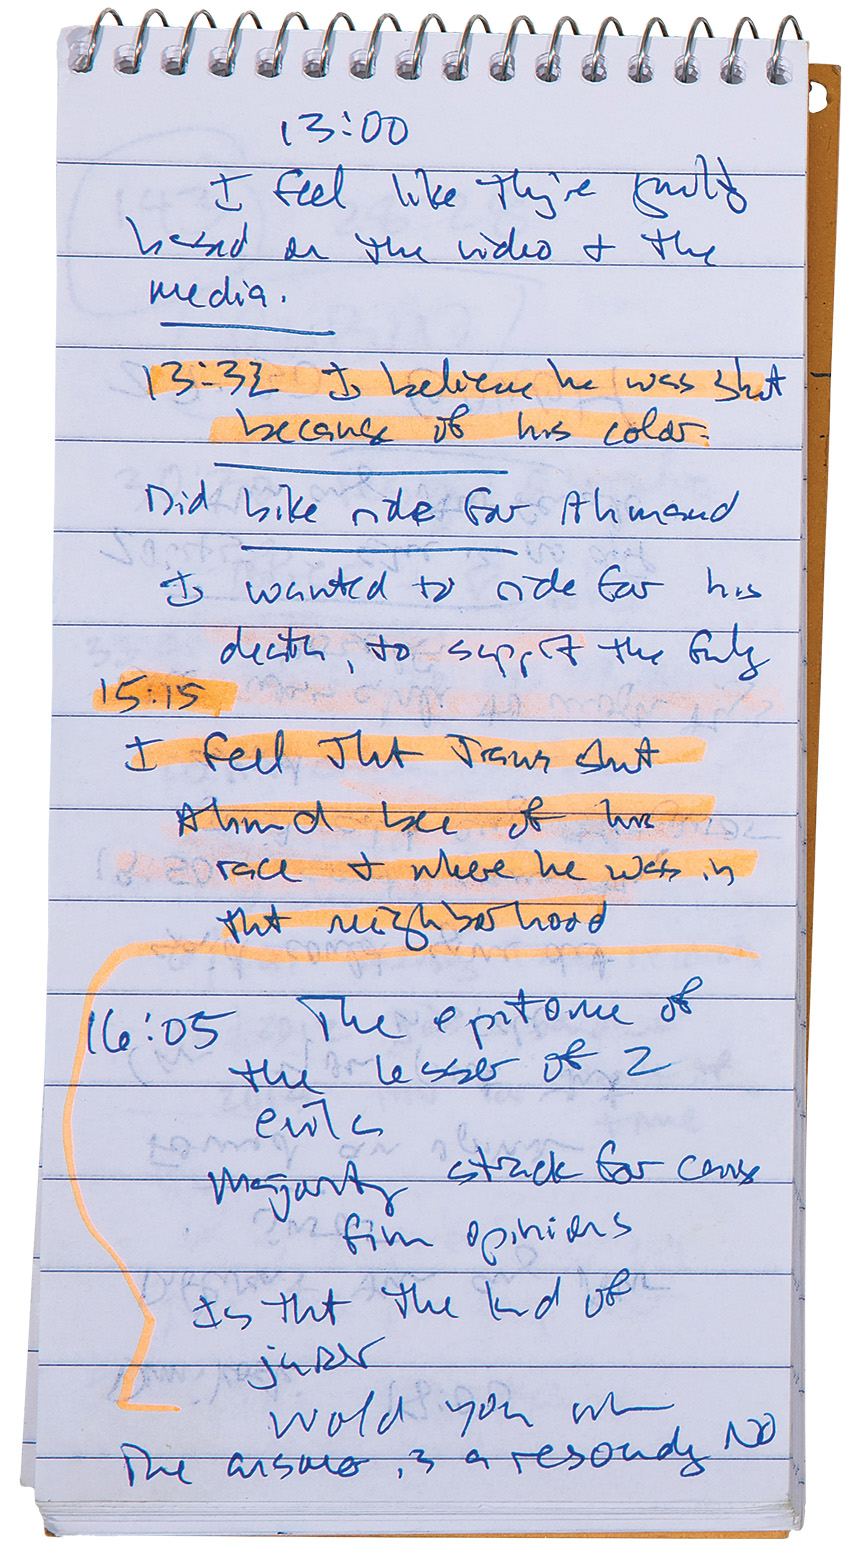 13:00
I feel like they're guilty
based on the video + the
media.
13:32 I believe he was shot
because of his color.
Did bike ride for Ahmaud
I wanted to ride for his
death, to support the family
15:15
I feel tht Travis shot
Ahmd bec of his
race + where he was in
tht neighborhood
16:05 The epitome of
the lesser of 2
evils
Majority struck for cause
firm opinions
Is tht the kind of
juror
would you
The answer is a resoundg NO